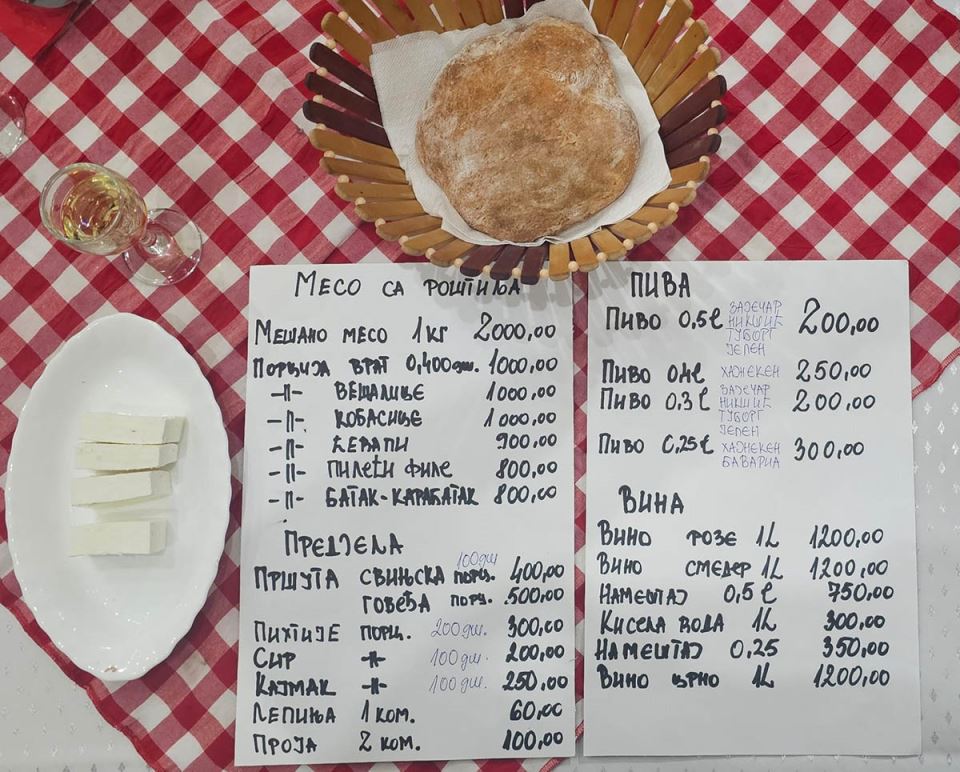 Месо са роштиља
Мешано месо 1кг 2000,00
Порција врат 0,400гм. 1000,00
-||- вешалице 1000,00
-||- кобасице 1000,00
-||- ћевапи 900,00
-||- пилећи филе 800,00
-||- батак-карабатак 800,00
Предјела
100гм
Пршута свињска порц. 400,00
говеђа порц. 500,00
Пихтије порц. 200гм. 300,00
Сир -||- 100гм. 200,00
Кајмак -||- 100гм. 250,00
Лепиња 1 ком. 60,00
Проја 2 ком. 100,00
ПИВА
Пиво 0,5l зајечар 200,00
никшић
туборг
јелен
Пиво 0,4l хајнекен 250,00
Пиво 0,3l зајечар 200,00
никшић
туборг
јелен
Пиво 0,25l хајнекен 300,00
бавариа
ВИНА
Вино розе 1L 1200,00
Вино смедер 1L 1200,00
Намештај 0,5l 750,00
Кисела вода 1L 300,00
Намештај 0,25 350,00
Вино црно 1L 1200,00